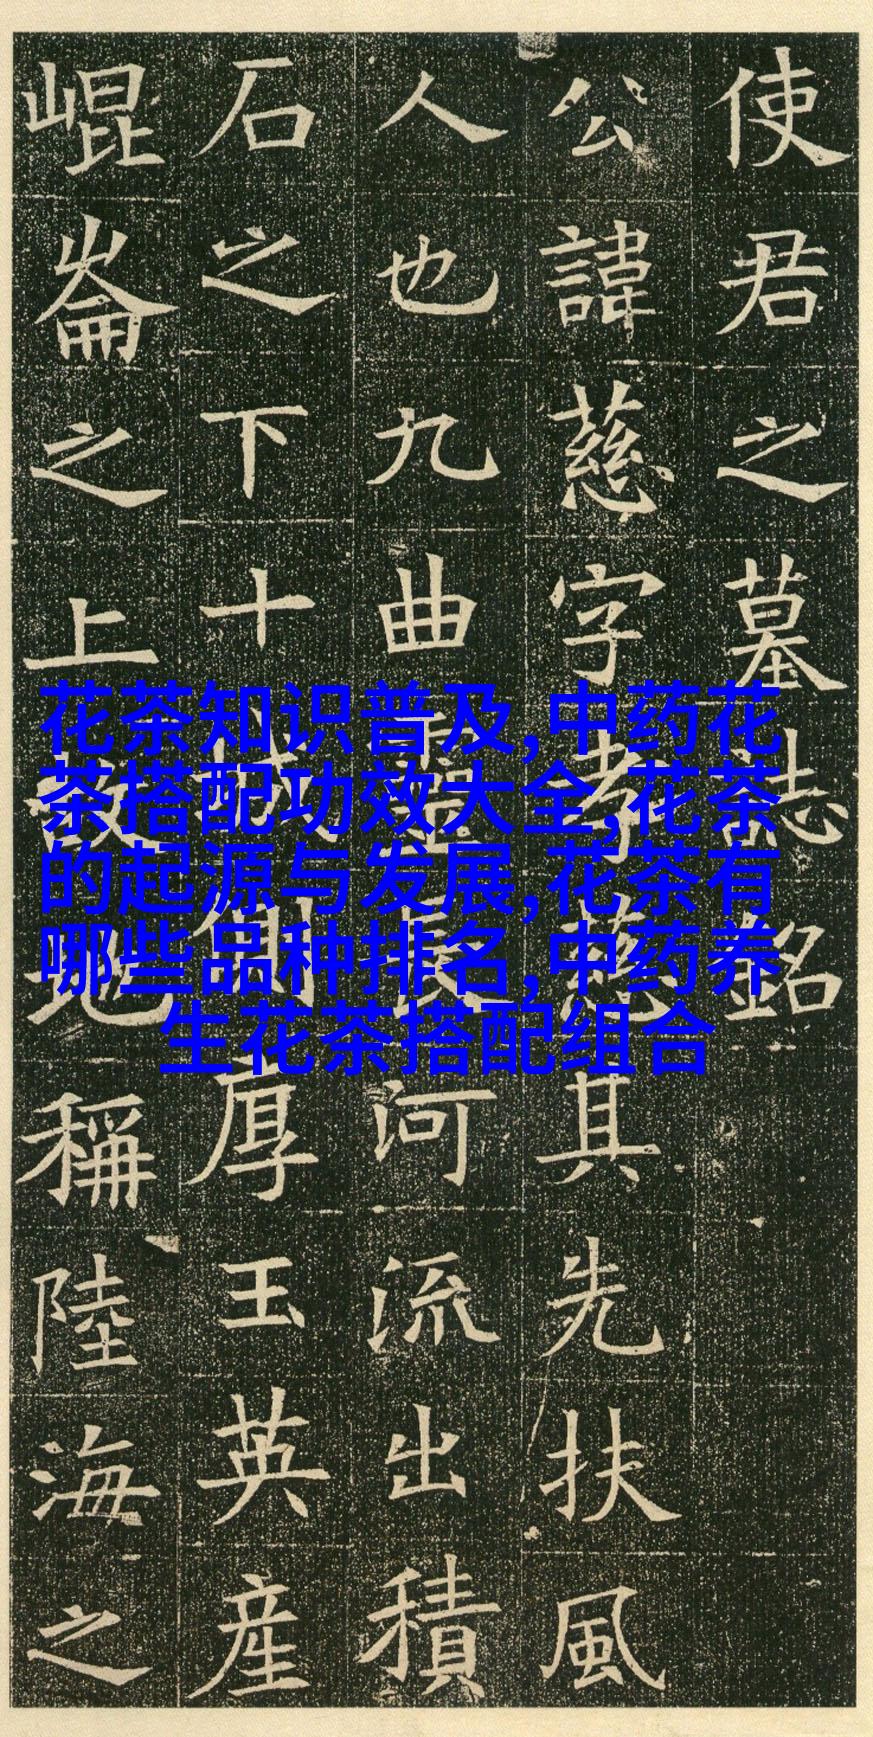 使君之墓誌銘
公諱慈字孝慈其先扶風
人也九曲長河流出積
石之下十城側厚玉英産
崐崙之上故地稱陸海之
花茶知识普及,中药花
茶搭配功效大全,花茶
的起源与发展,花茶有
哪些品种排名,中药养
生花茶搭配组合